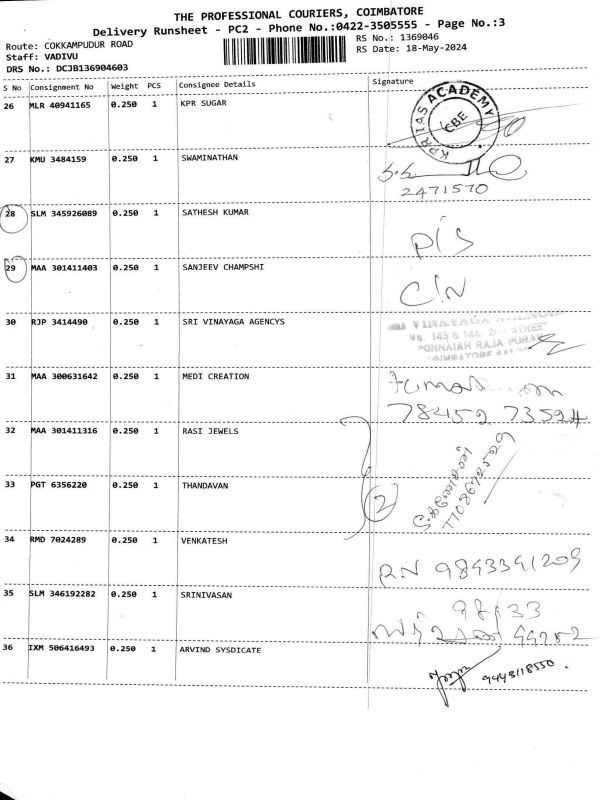 THE PROFESSIONAL COURIERS, COIMBATORE
Delivery Runsheet - PC2 - Phone No.:0422-3505555 - Page No.:3
Route: COKKAMPUDUR ROAD
RS No.: 1369046
Staff: VADIVU
RS Date: 18-May-2024
DRS No.: DCJB136904603
S No Consignment No Weight PCS Consignee Details Signature
26 MLR 40941165 0.250 1 KPR SUGAR
KPR IAS ACADEMY
CBE
27 KMU 3484159 0.250 1 SWAMINATHAN
2471570
28 SLM 345926089 0.250 1 SATHESH KUMAR
P/S
29 MAA 301411403 0.250 1 SANJEEV CHAMPSHI
C/N
30 RJP 3414490 0.250 1 SRI VINAYAGA AGENCYS
SRI VINAYAGA AGENCIES
No. 143 & 144, STREET
PONNAIAH RAJA PURAM
COIMBATORE
31 MAA 300631642 0.250 1 MEDI CREATION
78452 73524
32 MAA 301411316 0.250 1 RASI JEWELS
33 PGT 6356220 0.250 1 THANDAVAN
2
34 RMD 7024289 0.250 1 VENKATESH
R.N 9843341209
35 SLM 346192282 0.250 1 SRINIVASAN
98433
44282
36 IXM 506416493 0.250 1 ARVIND SYSDICATE
9443118550.